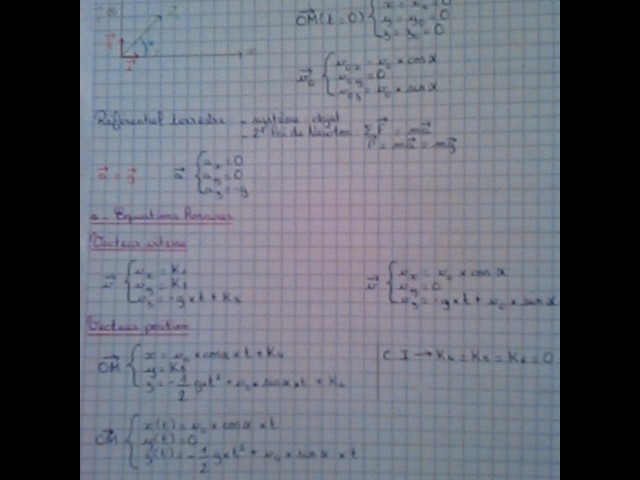 OM(t=0) { x = x₀ = 0
y = y₀ = 0
z = z₀ = 0
v₀ { v₀x = v₀ × cos α
v₀y = 0
v₀z = v₀ × sin α
Référentiel terrestre - système objet
- 2e loi de Newton ΣF = ma
P = ma = mg
a = g a { ax = 0
ay = 0
az = -g
a - Equations horaires
Vecteur vitesse
v { vx = K₁
vy = K₂
vz = -g×t + K₃
v { vx = v₀ × cos α
vy = 0
vz = -g×t + v₀ × sin α
Vecteur position
OM { x = v₀ × cos α × t + K₄
y = K₅
z = -1/2 g×t² + v₀ × sin α × t + K₆
C.I → K₄ = K₅ = K₆ = 0
OM { x(t) = v₀ × cos α × t
y(t) = 0
z(t) = -1/2 g×t² + v₀ × sin α × t